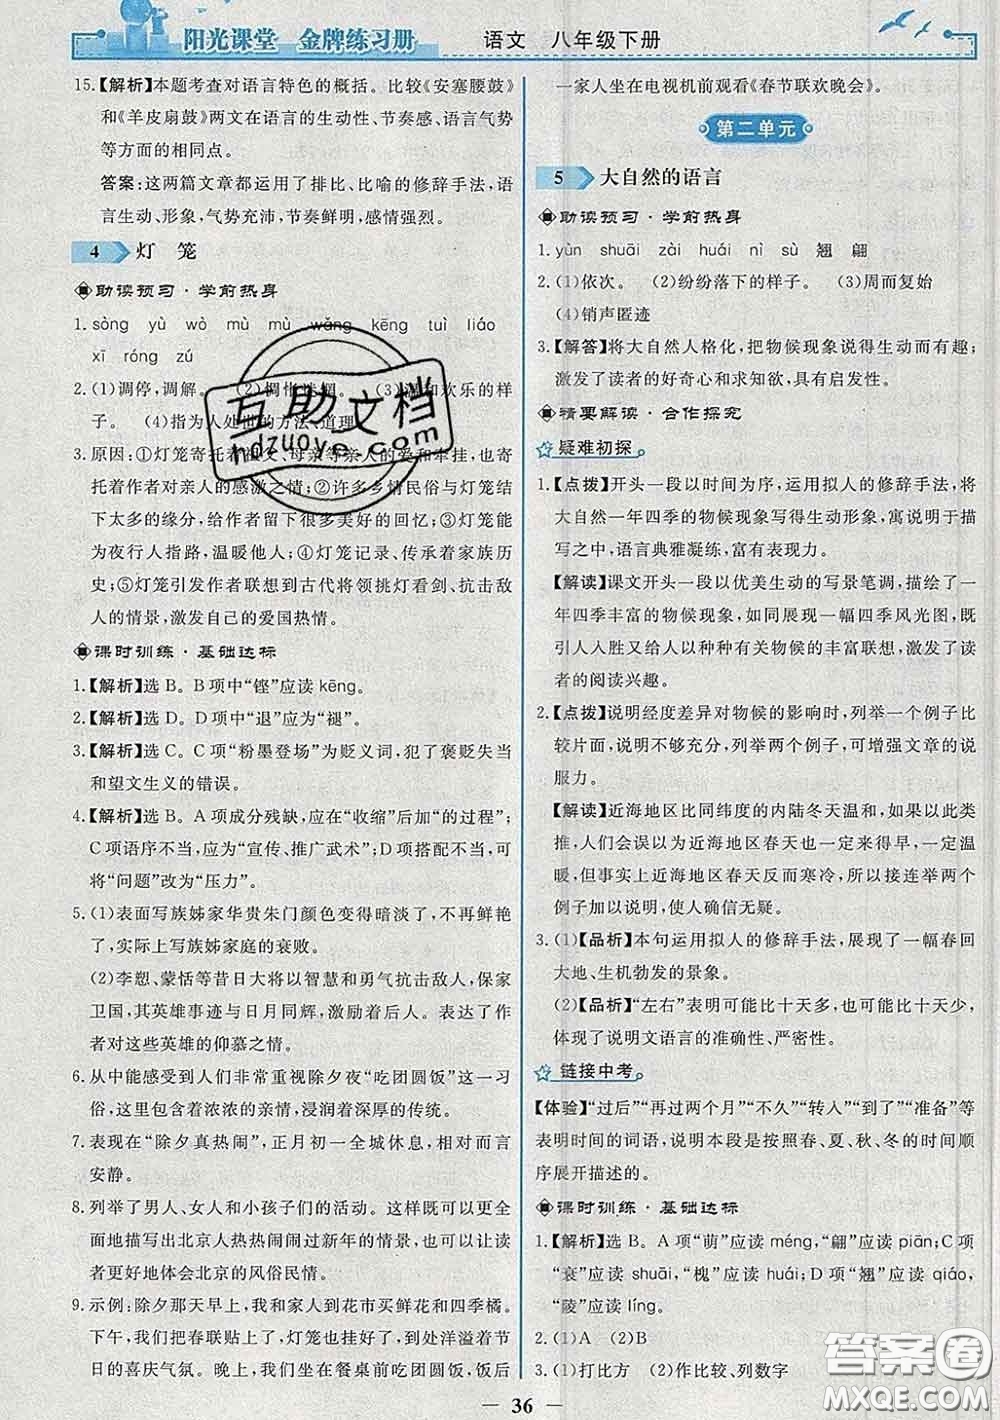 阳光课堂 金牌练习册 语文 八年级下册
15.【解析】本题考查对语言特色的概括。比较《安塞腰鼓》
和《羊皮扇鼓》两文在语言的生动性、节奏感、语言气势
等方面的相同点。
答案:这两篇文章都运用了排比、比喻的修辞手法,语
言生动、形象,气势充沛,节奏鲜明,感情强烈。
4 灯 笼
助读预习·学前热身
1. sòng yù wò mù mù wǎng kēng tuì liáo
xī róng zú
2.(1)调停,调解。 (2)惆怅迷惘。 (3)温和欢乐的样
子。 (4)指为人处世的方法、道理
3.原因:①灯笼寄托着祖父、母亲等亲人的爱和牵挂,也寄
托着作者对亲人的感激之情;②许多乡情民俗与灯笼结
下太多的缘分,给作者留下很多美好的回忆;③灯笼能
为夜行人指路,温暖他人;④灯笼记录、传承着家族历
史;⑤灯笼引发作者联想到古代将领挑灯看剑、抗击敌
人的情景,激发自己的爱国热情。
课时训练·基础达标
1.【解析】选 B。B 项中“铿”应读 kēng。
2.【解析】选 D。D 项中“退”应为“褪”。
3.【解析】选 C。C 项“粉墨登场”为贬义词,犯了褒贬失当
和望文生义的错误。
4.【解析】选 B。A 项成分残缺,应在“收缩”后加“的过程”;
C 项语序不当,应为“宣传、推广武术”;D 项搭配不当,可
将“问题”改为“压力”。
5.(1)表面写族姊家华贵朱门颜色变得暗淡了,不再鲜艳
了,实际上写族姊家庭的衰败。
(2)李愬、蒙恬等昔日大将以智慧和勇气抗击敌人,保家
卫国,其英雄事迹与日月同辉,激励后代。表达了作
者对这些英雄的仰慕之情。
6.从中能感受到人们非常重视除夕夜“吃团圆饭”这一习
俗,有着浓浓的亲情,浸润着深厚的传统。
7.表现在“除夕真热闹”,正月初一全城休息,相对而言
安静。
8.列举了男人、女人和小孩子们的活动。这样既可以更全
面地描写出北京人热热闹闹过新年的情景,也可以让读
者更好地体会北京的风俗民情。
9.示例:除夕那天早上,我和家人到花市买鲜花和四季橘。
下午,我们把春联贴上了,灯笼挂起来了,到处洋溢着节日
的喜庆气氛。晚上,我们坐在餐桌前吃团圆饭,饭后
一家人坐在电视机前观看《春节联欢晚会》。
第二单元
5 大自然的语言
助读预习·学前热身
1. yùn shuāi zài huái nì sù 翘 翩
2.(1)依次。 (2)纷纷落下的样子。 (3)周而复始
(4)销声匿迹
3.【解答】将大自然人格化,把物候现象说得生动而有趣;
激发了读者的好奇心和求知欲,具有启发性。
精要解读·合作探究
疑难初探
1.【点拨】开头一段以时间为序,运用拟人的修辞手法,将
大自然一年四季的物候现象写得生动形象,寓说明于描
写之中,语言典雅凝练,富有表现力。
【解读】课文开头一段以优美生动的写景笔调,描绘了一
年四季丰富的物候现象,如同展现一幅四季风光图,既
引人入胜又给人以种种有关物候的丰富联想,激发了读
者的阅读兴趣。
2.【点拨】说明经度差异对物候的影响时,列举一个例子比
较片面,说明不够充分,列举两个例子,可增强文章的说
服力。
【解读】近海地区比同纬度的内陆冬天温和,如果以此类
推,人们就会以为近海地区春天也一定来得早、一定温
暖,但事实上,近海地区春天反而寒冷,所以接连举两个
例子加以说明,使人确信无疑。
3.(1)【品析】本句运用拟人的修辞手法,展现了一幅春回
大地、生机勃发的景象。
(2)【品析】“左右”表明可能比十天多,也可能比十天少,
体现了说明文语言的准确性、严密性。
链接中考
【体验】“过后”“再过两个月”“不久”“转入”“到了”“准备”等
表明时间的词语,说明本段是按照春、夏、秋、冬的时间顺
序展开描述的。
课时训练·基础达标
1.【解析】选 B。A 项“萌”应读 méng,“翩”应读 piān;C 项
“衰”应读 shuāi,“槐”应读 huái;D 项“翘”应读 qiáo,
“陵”应读 líng。
2.(1)A (2)B
3.(1)打比方 (2)作比较、列数字
36
互助文档
hdzuoye.com
答案圈
MXQE.COM